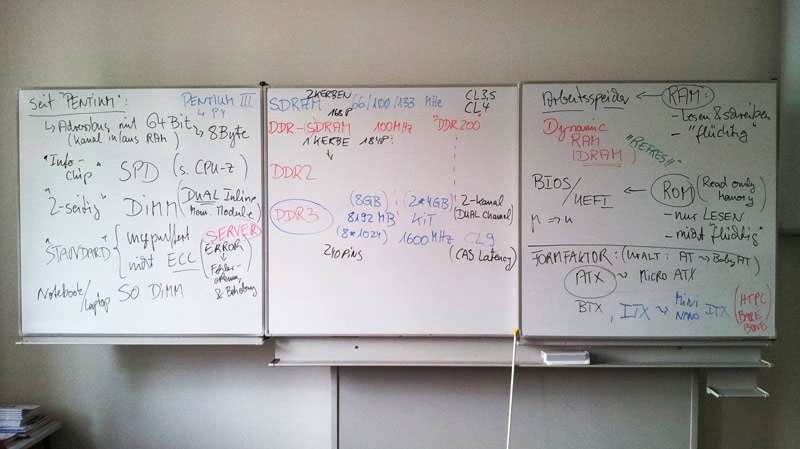 seit "PENTIUM":
PENTIUM III
↳ P4
↳ Adressbus mit 64 Bit
(Kanal in/aus RAM)
↳ 8Byte
"Info-
chip"
SPD (s. CPU-Z)
"2-seitig" DIMM (DUAL Inline
Mem. Module)
"STANDARD" { ungepuffert
nicht ECC
SERVER
(ERROR
↓
Fehler-
& Behebung)
Notebook/
Laptop SO DIMM
2KERBEN
SDRAM 66/100/133 MHz
168P
CL3,5
CL4
DDR-(SDRAM 100MHz "DDR200"
1 KERBE 184P:
DDR2
DDR3
(8GB) : (2*4GB)
8192 MB KIT
(8*1024) 1600MHz CL9
2-kanal
(DUAL Channel)
240 PINS
(CAS Latency)
Arbeitsspeicher ← RAM:
- Lesen & schreiben
- "flüchtig"
Dynamic
RAM
(DRAM)
"REFRESH"
BIOS/
UEFI
← ROM (Read only
memory)
- nur LESEN
- nicht "flüchtig"
FORMFAKTOR: (URALT: AT → Baby AT)
ATX → MICRO ATX
BTX, ITX → Mini
NANO ITX
(HTPC
BARE
BONE)